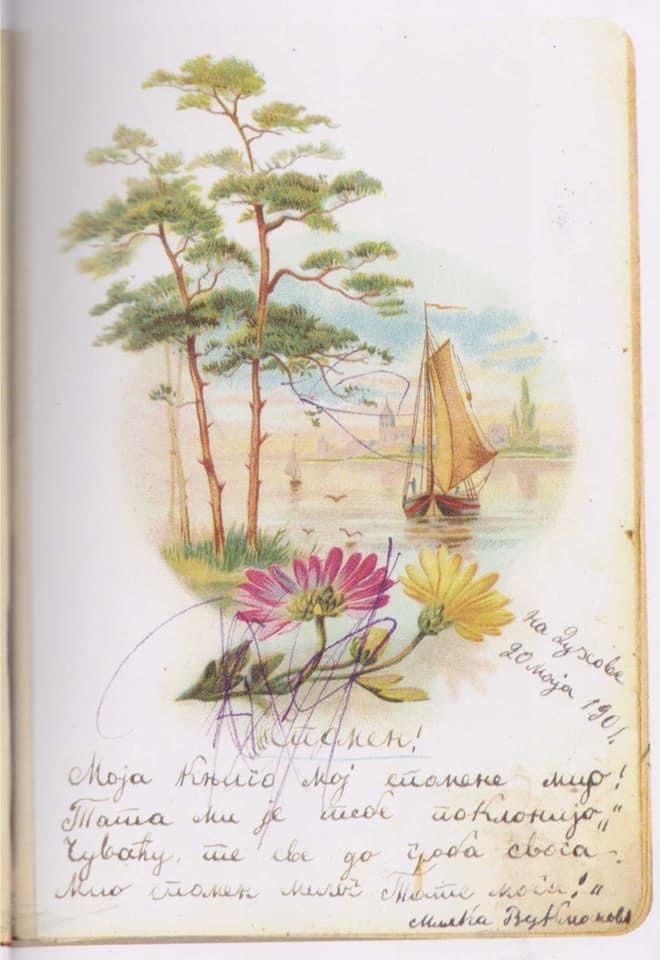 на Духове
20 маја 1901.
Спомен!
Моја књиго мој спомене мио!
Тата ми је тебе поклонијо„
Чуваћу. те све до гроба свога –
Мио спомен милог Тате мога! „
Милка Вукманов